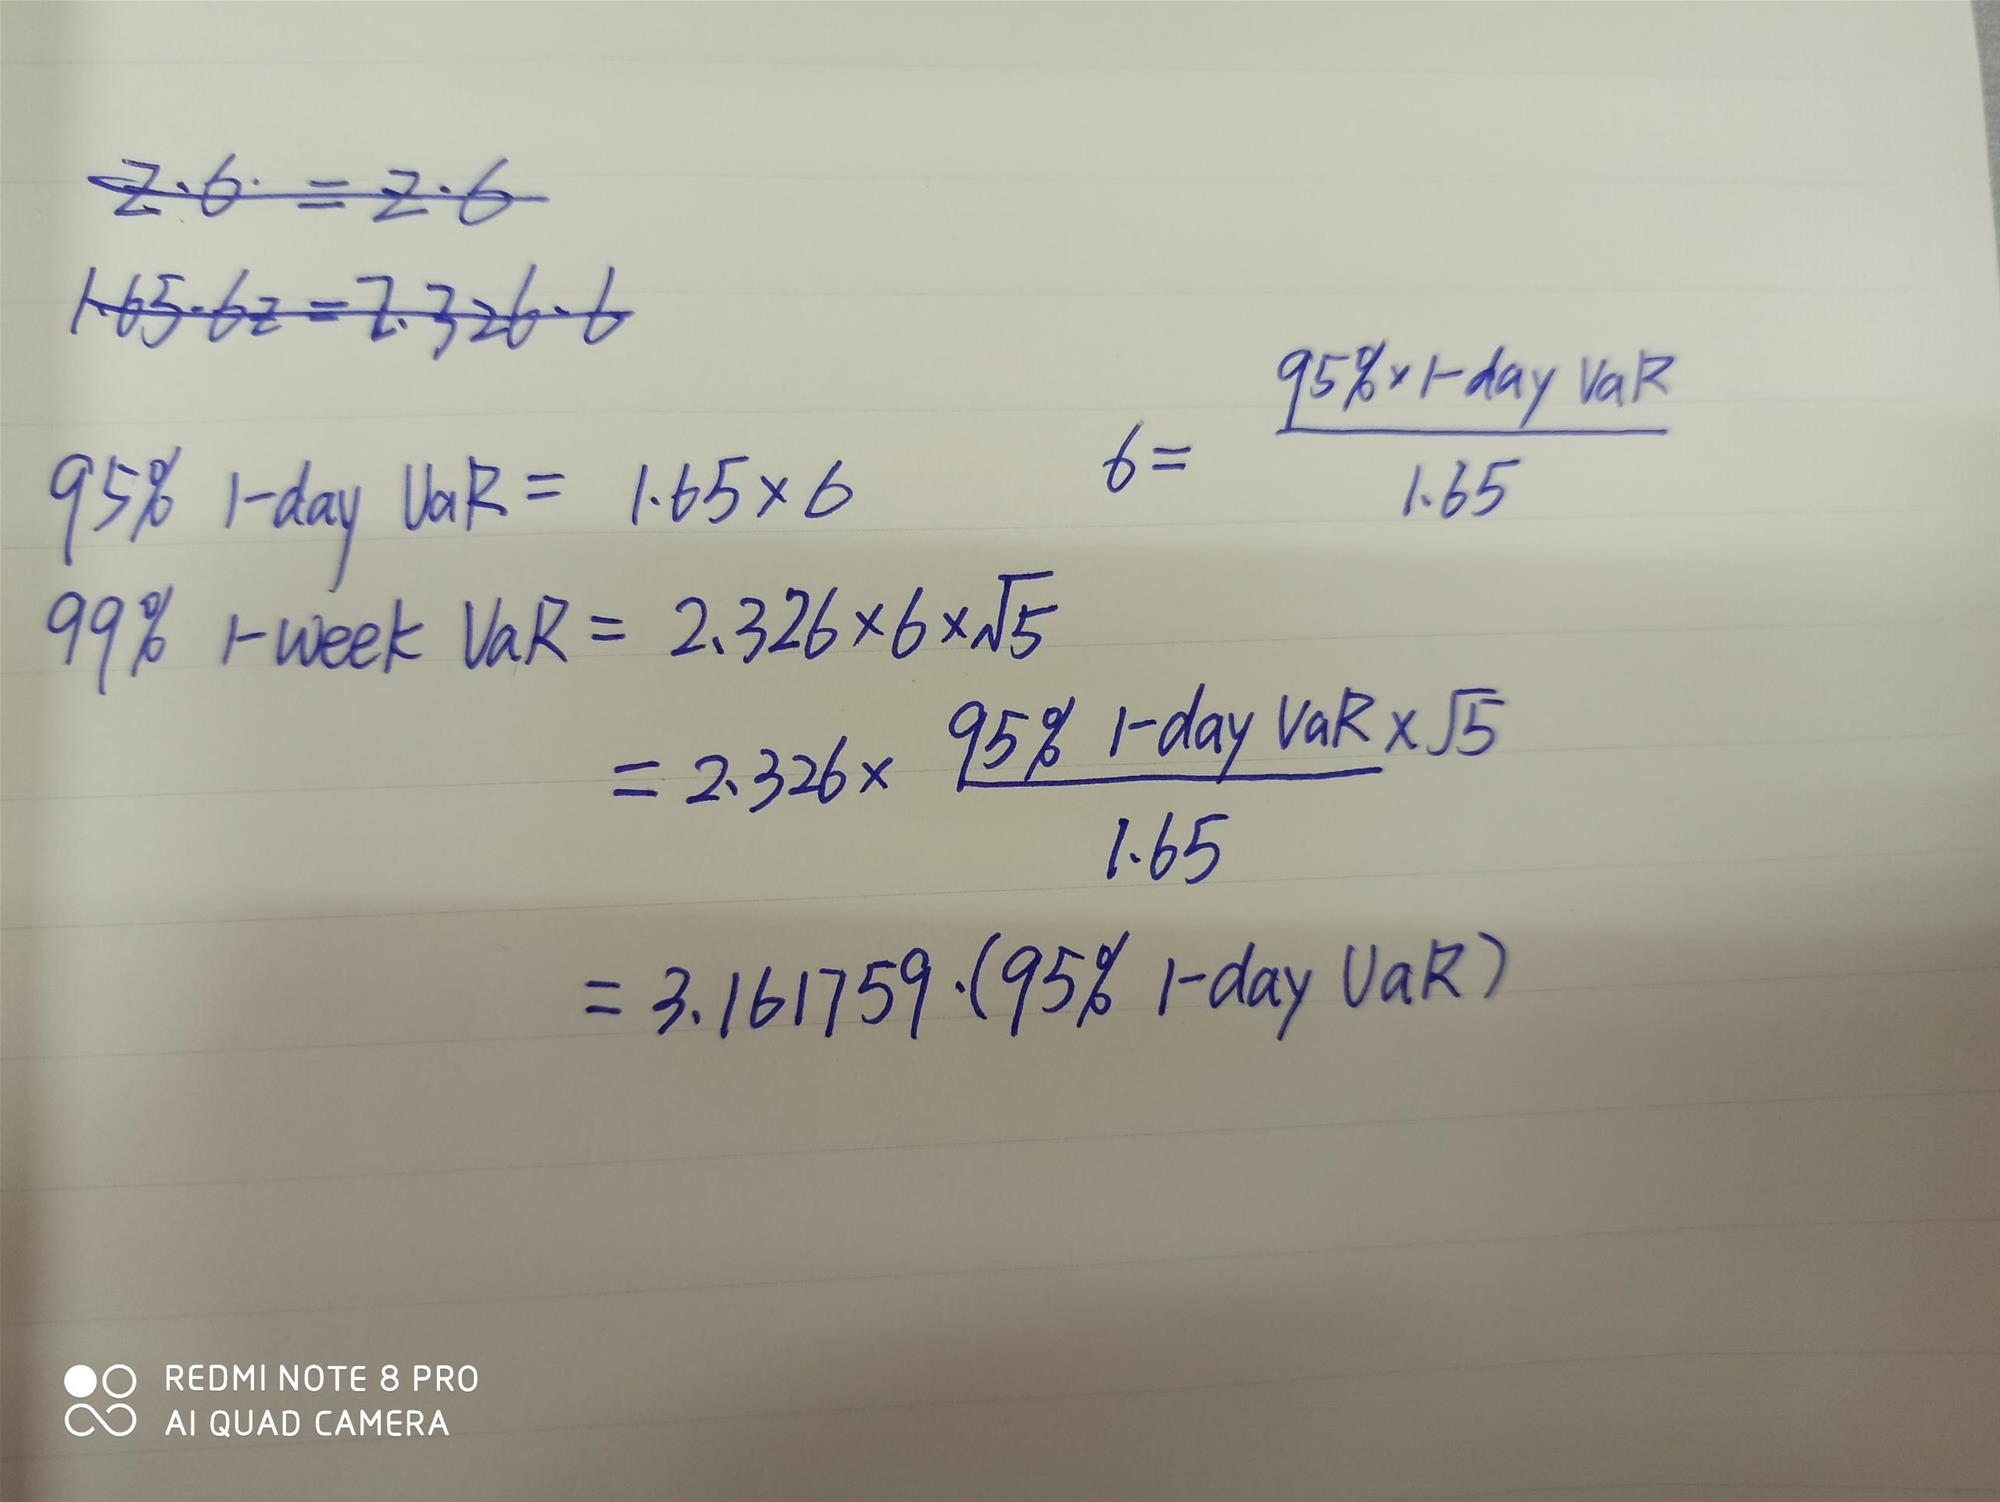 z·6· = z·6
1.65·6z = 2.326·6
95% 1-day VaR = 1.65×6
6 = 95%× 1-day VaR
1.65
99% 1-week VaR = 2.326×6×√5
= 2.326× 95% 1-day VaR ×√5
1.65
= 3.161759·(95% 1-day VaR)
REDMI NOTE 8 PRO
AI QUAD CAMERA